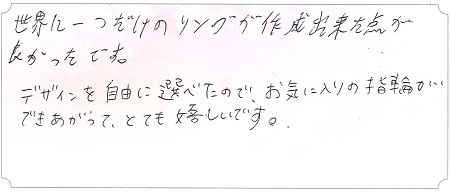 世界に一つだけのリングが作成出来た点が
良かったです。
デザインを自由に選べたので、お気に入りの指輪が
できあがって、とても嬉しいです。